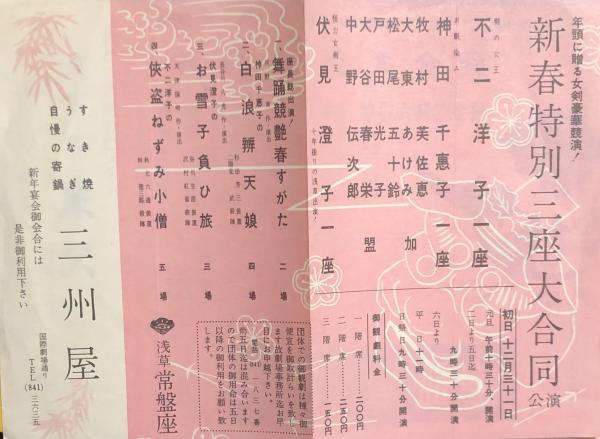 年頭に贈る女剣豪華競演!
新春特別三座大合同公演
剣の女王
不二洋子一座
お馴染み
神田千恵子一座
牧村美佐恵
大東あけみ
松尾五十鈴
加
戸田光子
大谷春栄
中野伝次郎
盟
強力女剣王
伏見澄子一座
十年振りの浅草出演!
初日 十二月三十一日
元旦 午前七時三十分、開演
二日より五日迄
九時三十分開演
六日より
平日 十一時
日祭日九時三十分開演
御観劇料金
一階席……二〇〇円
二階席……二五〇円
三階席……一五〇円
団体での御観劇は種々御
便宜を御取計らいを致し
ます故劇場事務所迄お早
目にお申越下さい。
電話(841)一八三七番
尚五日迄は混み合います
ので団体の御用命は五日
以降の御利用をお願い致
します。
浅草 常盤座
座員総出演!
一、舞踊競艶春すがた 二場
神田千恵子の
二、白浪辨天娘 四場
伏見澄子の
三、お雪子負ひ旅 三場
不二洋子の
四、侠盗ねずみ小僧 五場
すき焼
うなぎ
自慢の寄鍋
三州屋
新年宴会御会合には
是非御利用下さい
国際劇場通り
TEL(841)三六三五